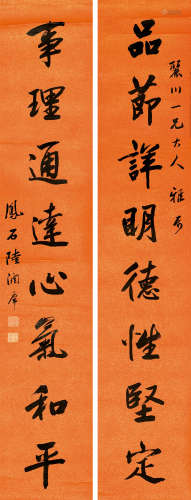 麗川一兄大人 雅屬
品節詳明德性堅定
事理通達心氣和平
鳳石陸潤庠